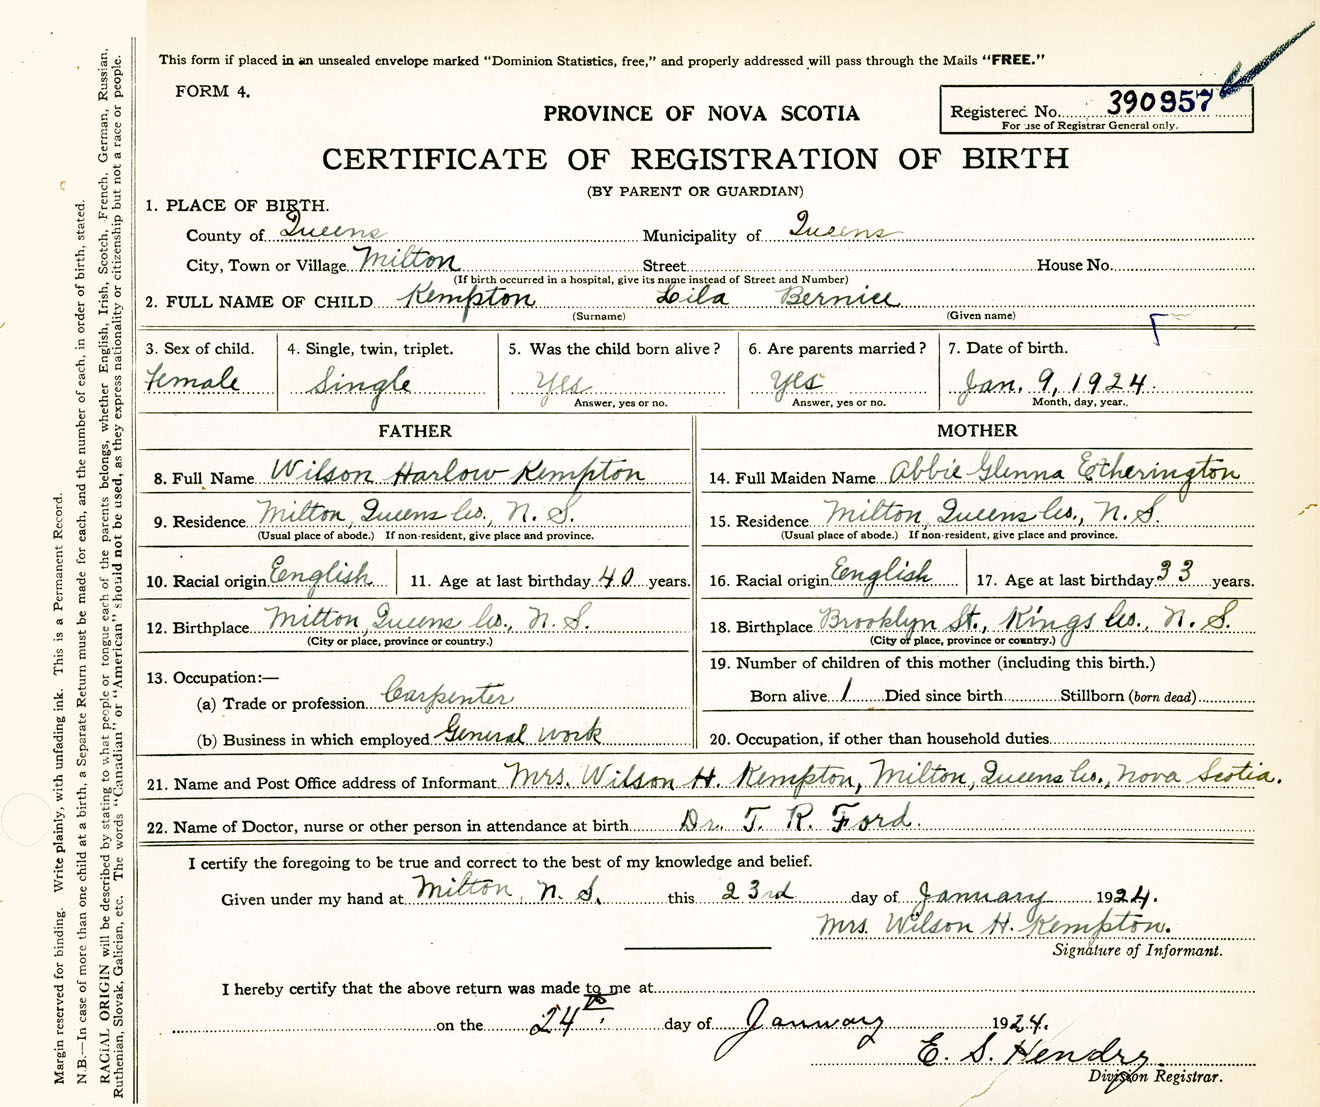 This form if placed in an unsealed envelope marked "Dominion Statistics, free," and properly addressed will pass through the Mails "FREE."
FORM 4.
PROVINCE OF NOVA SCOTIA
Registered No. 390957
For use of Registrar General only.
CERTIFICATE OF REGISTRATION OF BIRTH
(BY PARENT OR GUARDIAN)
1. PLACE OF BIRTH.
County of Queens Municipality of Queens
City, Town or Village Milton Street House No.
(If birth occurred in a hospital, give its name instead of Street and Number)
2. FULL NAME OF CHILD Kempton Lila Bernice
(Surname) (Given name)
3. Sex of child. 4. Single, twin, triplet. 5. Was the child born alive? 6. Are parents married? 7. Date of birth.
Female Single Yes Yes Jan. 9, 1924.
Answer, yes or no. Answer, yes or no. Month, day, year.
FATHER MOTHER
8. Full Name Wilson Harlow Kempton 14. Full Maiden Name Abbie Glenna Etherington
9. Residence Milton, Queens Co., N. S. 15. Residence Milton, Queens Co., N. S.
(Usual place of abode.) If non-resident, give place and province. (Usual place of abode.) If non-resident, give place and province.
10. Racial origin English 11. Age at last birthday 40 years. 16. Racial origin English 17. Age at last birthday 33 years.
12. Birthplace Milton, Queens Co., N. S. 18. Birthplace Brooklyn St., Kings Co., N. S.
(City or place, province or country.) (City or place, province or country.)
13. Occupation:— 19. Number of children of this mother (including this birth.)
(a) Trade or profession Carpenter Born alive 1 Died since birth Stillborn (born dead)
(b) Business in which employed General work 20. Occupation, if other than household duties
21. Name and Post Office address of Informant Mrs. Wilson H. Kempton, Milton, Queens Co., Nova Scotia.
22. Name of Doctor, nurse or other person in attendance at birth Dr. T. R. Ford.
I certify the foregoing to be true and correct to the best of my knowledge and belief.
Given under my hand at Milton, N. S. this 23rd day of January 1924.
Mrs. Wilson H. Kempton.
Signature of Informant.
I hereby certify that the above return was made to me at
on the 24th day of January 1924.
E. S. Hendry
Division Registrar.
Margin reserved for binding. Write plainly, with unfading ink. This is a Permanent Record.
N.B.—In case of more than one child at a birth, a Separate Return must be made for each, and the number of each, in order of birth, stated.
RACIAL ORIGIN will be described by stating to what people or tongue each of the parents belongs, whether English, Irish, Scotch, French, German, Russian,
Ruthenian, Slovak, Galician, etc. The words "Canadian" or "American" should not be used, as they express nationality or citizenship but not a race or people.